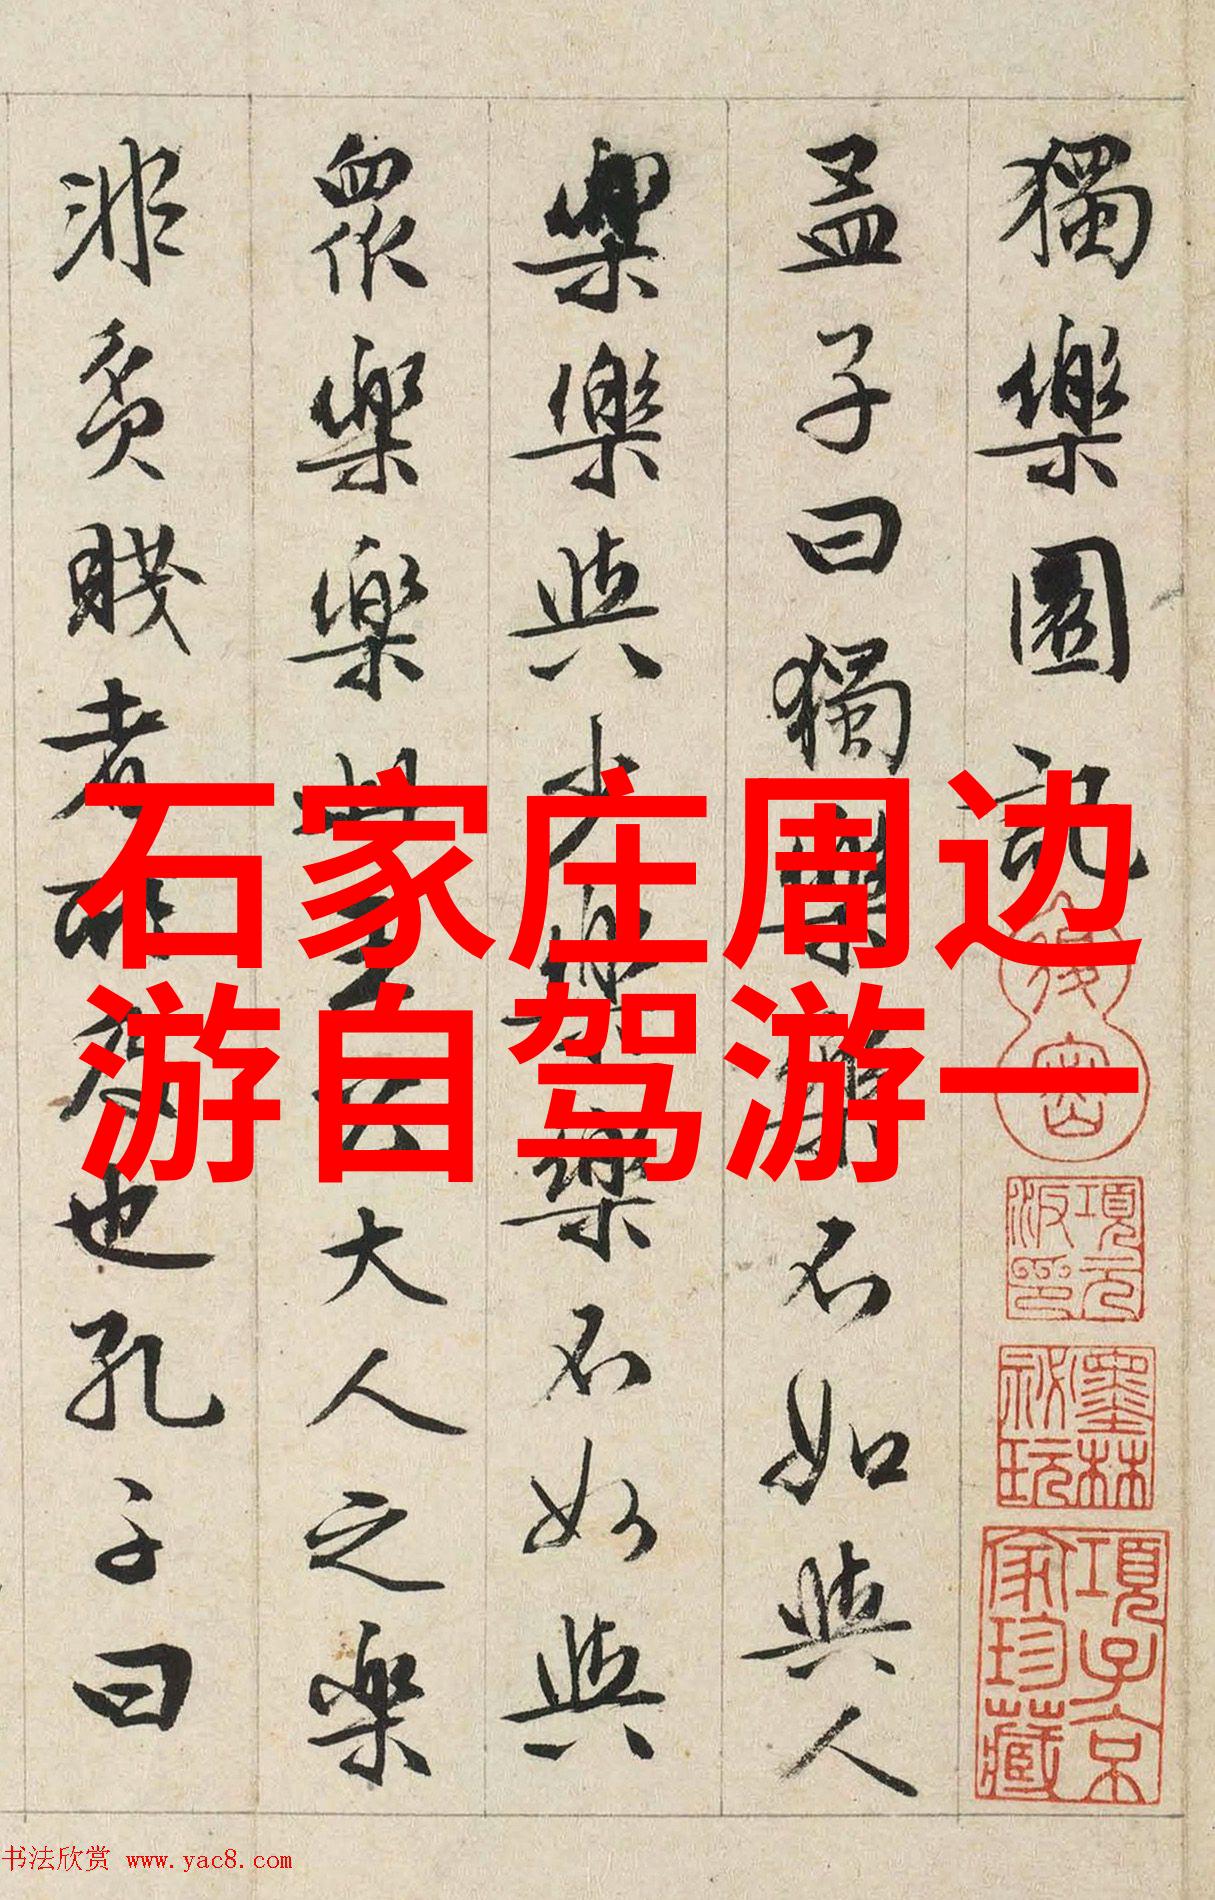 獨樂園記
孟子曰獨樂樂不如與人
樂樂與少樂樂不如與
眾樂樂此王公大人之樂
非貧賤者所及也孔子曰
石家庄周边
游自驾游一
項元汴印
墨林祕玩
項子京家珍藏
书法欣赏 www.yac8.com